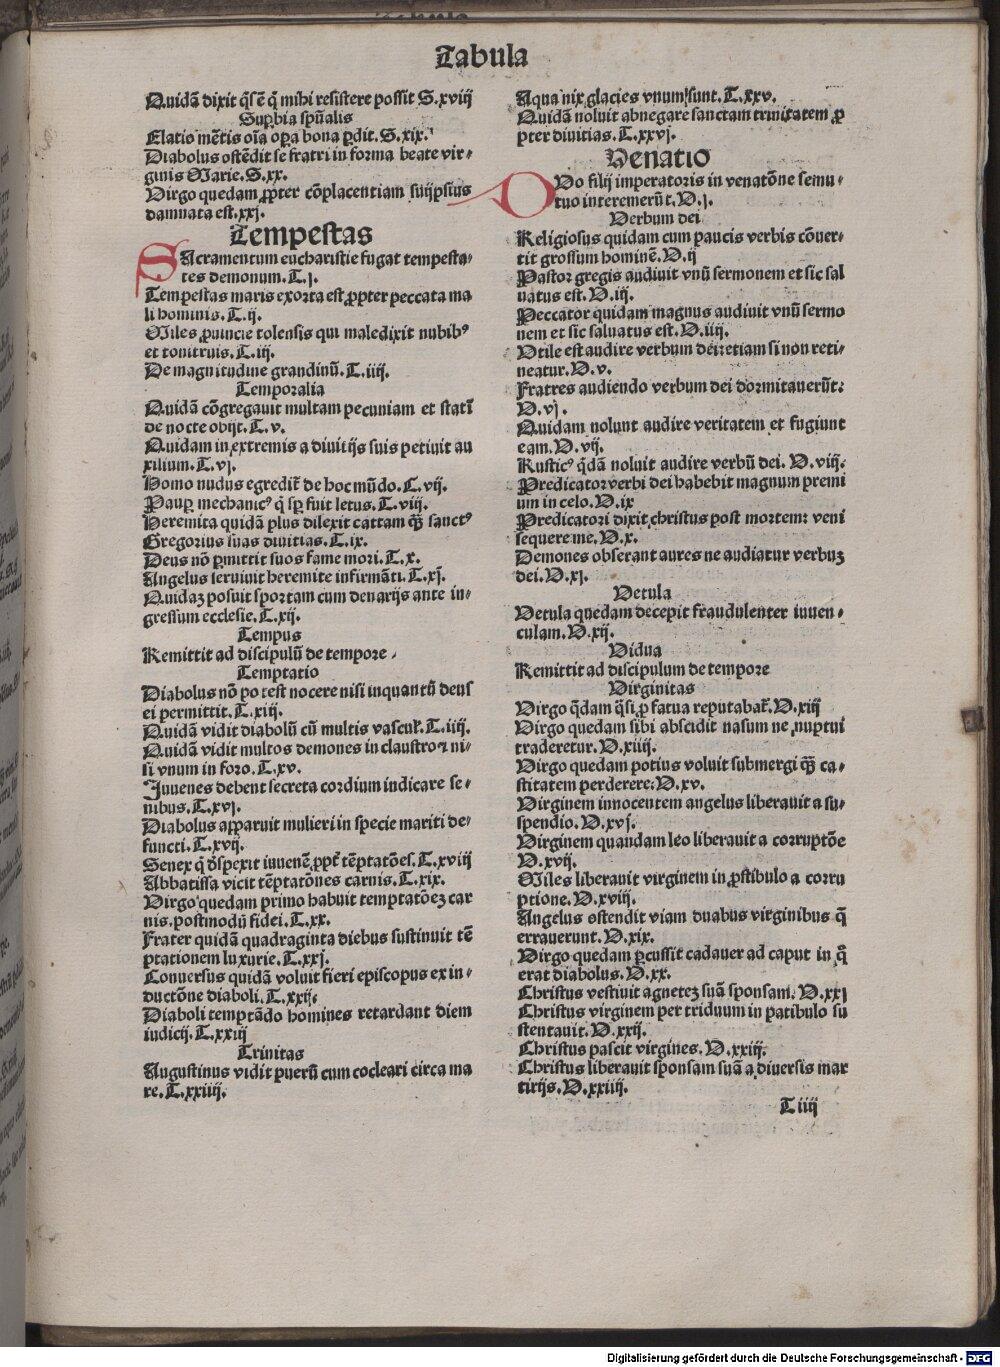 Tabula
Quidā dixit q̄s ē q̄ mihi resistere possit S.xviij
Suꝑbia spūalis
Elatio mētis oīa oꝑa bona ꝑdit. S.xix.
Diabolus ostēdit se fratri in forma beate vir-
ginis Marie. S.xx.
Virgo quedam ꝓpter cōplacentiam suijpsius
damnata est. xxj.
Tempestas
SAcramentum eucharistie fugat tempesta-
tes demonum. T.j.
Tempestas maris exorta est ꝓpter peccata ma
li hominis. T.ij.
Miles ꝓuincie tolensis qui maledixit nubibꝰ
et tonitruis. T.iij.
De magnitudine grandinū. T.iiij.
Temporalia
Quidā cōgregauit multam pecuniam et statī
de nocte obijt. T.v.
Quidam in extremis a diuitijs suis petiuit au
xilium. T.vj.
Homo nudus egredit̄ de hoc mūdo. T.vij.
Pauꝑ mechanicꝰ q̄ sꝑ fuit letus. T.viij.
Heremita quidā plus dilexit cattam q̄ꝫ sanctꝰ
Gregorius suas diuitias. T.ix.
Deus nō ꝑmittit suos fame mori. T.x.
Angelus seruiuit heremite infirmāti. T.xj.
Quidaꝫ posuit sportam cum denarijs ante in-
gressum ecclesie. T.xij.
Tempus
Remittit ad discipulū de tempore.
Temptatio
Diabolus nō potest nocere nisi inquantū deus
ei permittit. T.xiij.
Quidā vidit diabolū cū multis vascul̄. T.iiij.
Quidā vidit multos demones in claustro ⁊ ni-
si vnum in foro. T.xv.
Juuenes debent secreta cordium indicare se-
nibus. T.xvj.
Diabolus apparuit mulieri in specie mariti de-
functi. T.xvij.
Senex q̄ dispexit iuuenē ꝓpt̄ tēptatōes. T.xviij
Abbatissa vicit tēptatōnes carnis. T.xix.
Virgo quedam primo habuit temptatōeꝫ car
nis. postmodū fidei. T.xx.
Frater quidā quadraginta diebus sustinuit tē
ptationem luxurie. T.xxj.
Conuersus quidā voluit fieri episcopus ex in-
ductōne diaboli. T.xxij.
Diaboli temptādo homines retardant diem
iudicij. T.xxiij
Trinitas
Augustinus vidit puerū cum cocleari circa ma
re. T.xxiiij.
Aqua nix glacies vnum sunt. T.xxv.
Quidā noluit abnegare sanctam trinitatem ꝓ
pter diuitias. T.xxvj.
Venatio
DVo filij imperatoris in venatōne se mu-
tuo interemerūt. V.j.
Verbum dei
Religiosus quidam cum paucis verbis cōuer-
tit grossum hominē. V.ij
Pastor gregis audiuit vnū sermonem et sic sal
uatus est. V.iij.
Peccator quidam magnus audiuit vnū sermo
nem et sic saluatus est. V.iiij.
Vtile est audire verbum dei: etiam si non reti-
neatur. V.v.
Fratres audiendo verbum dei dormitauerūt.
V.vj.
Quidam nolunt audire veritatem et fugiunt
eam. V.vij.
Rusticꝰ q̄dā noluit audire verbū dei. V.viij.
Predicator verbi dei habebit magnum premi
um in celo. V.ix
Predicatori dixit christus post mortem: veni
sequere me. V.x.
Demones obserant aures ne audiatur verbuꝫ
dei. V.xj.
Vetula
Vetula quedam decepit fraudulenter iuuen-
culam. V.xij.
Vidua
Remittit ad discipulum de tempore
Virginitas
Virgo q̄dam q̄si ꝓ fatua reputabat̄. V.xiij
Virgo quedam sibi abscidit nasum ne nuptui
traderetur. V.xiiij.
Virgo quedam potius voluit submergi q̄ꝫ ca-
stitatem perderere. V.xv.
Virginem innocentem angelus liberauit a su-
spendio. V.xvj.
Virginem quandam leo liberauit a corruptōe
V.xvij.
Miles liberauit virginem in ꝓstibulo a corru
ptione. V.xviij.
Angelus ostendit viam duabus virginibus q̄
errauerunt. V.xix.
Virgo quedam ꝑcussit cadauer ad caput in q̊
erat diabolus. V.xx.
Christus vestiuit agneteꝫ suā sponsam. V.xxj
Christus virginem per triduum in patibulo su
stentauit. V.xxij.
Christus pascit virgines. V.xxiij.
Christus liberauit sponsam suā a diuersis mar
tirijs. V.xxiiij.
T iiij
Digitalisierung gefördert durch die Deutsche Forschungsgemeinschaft - DFG